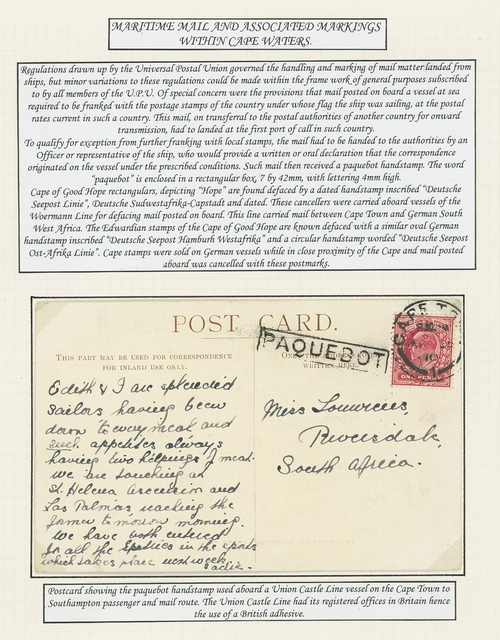 MARITIME MAIL AND ASSOCIATED MARKINGS
WITHIN CAPE WATERS.
Regulations drawn up by the Universal Postal Union governed the handling and marking of mail matter landed from
ships, but minor variations to these regulations could be made within the frame work of general purposes subscribed
to by all members of the U.P.U. Of special concern were the provisions that mail posted on board a vessel at sea
required to be franked with the postage stamps of the country under whose flag the ship was sailing, at the postal
rates current in such a country. This mail, on transferral to the postal authorities of another country for onward
transmission, had to landed at the first port of call in such country.
To qualify for exception from further franking with local stamps, the mail had to be handed to the authorities by an
Officer or representative of the ship, who would provide a written or oral declaration that the correspondence
originated on the vessel under the prescribed conditions. Such mail then received a paquebot handstamp. The word
"paquebot" is enclosed in a rectangular box, 7 by 42mm, with lettering 4mm high.
Cape of Good Hope rectangulars, depicting "Hope" are found defaced by a dated handstamp inscribed "Deutsche
Seepost Linie", Deutsche Sudwestafrika-Capstadt and dated. These cancellers were carried aboard vessels of the
Woermann Line for defacing mail posted on board. This line carried mail between Cape Town and German South
West Africa. The Edwardian stamps of the Cape of Good Hope are known defaced with a similar oval German
handstamp inscribed "Deutsche Seepost Hamburh Westafrika" and a circular handstamp worded "Deutsche Seepost
Ost-Afrika Linie". Cape stamps were sold on German vessels while in close proximity of the Cape and mail posted
aboard was cancelled with these postmarks.
POST CARD.
PAQUEBOT
CAPE TO
ONE PENNY
THIS PART MAY BE USED FOR CORRESPONDENCE
FOR INLAND USE ONLY.
WRITTEN HERE.
Edith & I are splendid
sailors having been
down to every meal and
such appetites always
having two helpings of meat.
We are touching at
St. Helena Ascension and
Las Palmas reaching the
former tomorrow morning.
We have both entered
for all the Sports in the sports
which takes place next week
Miss Louwrens,
Riversdale,
South Africa.
Postcard showing the paquebot handstamp used aboard a Union Castle Line vessel on the Cape Town to
Southampton passenger and mail route. The Union Castle Line had its registered offices in Britain hence
the use of a British adhesive.